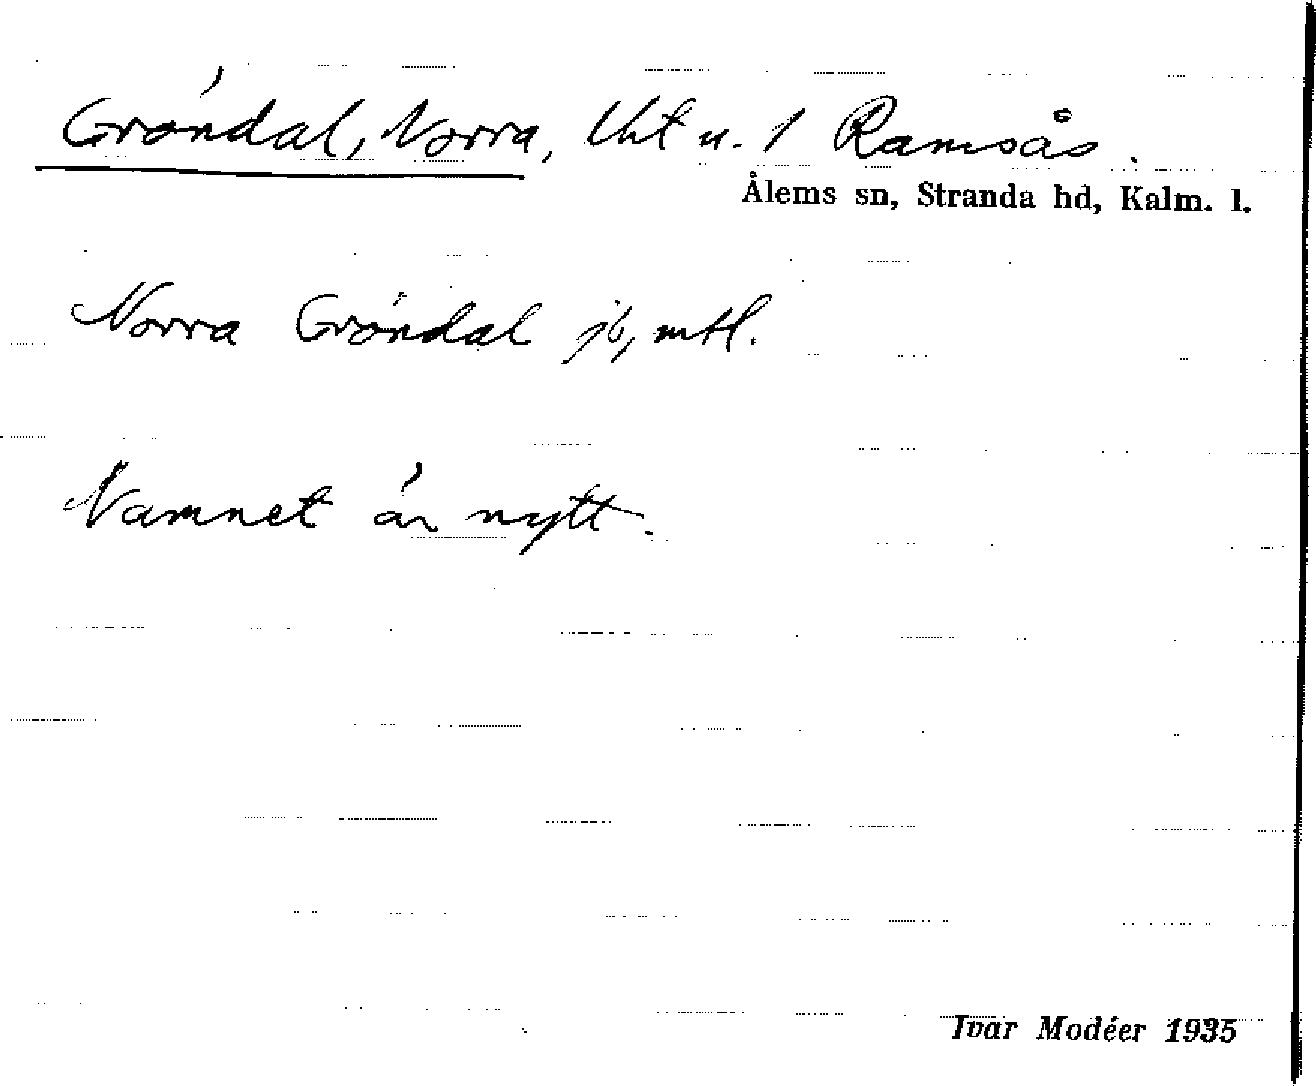 Gröndal, Norra, lht u. 1 Ramsås.
Ålems sn, Stranda hd, Kalm. l.
Norra Gröndal jb, mtl.
Namnet är nytt.
Ivar Modéer 1935